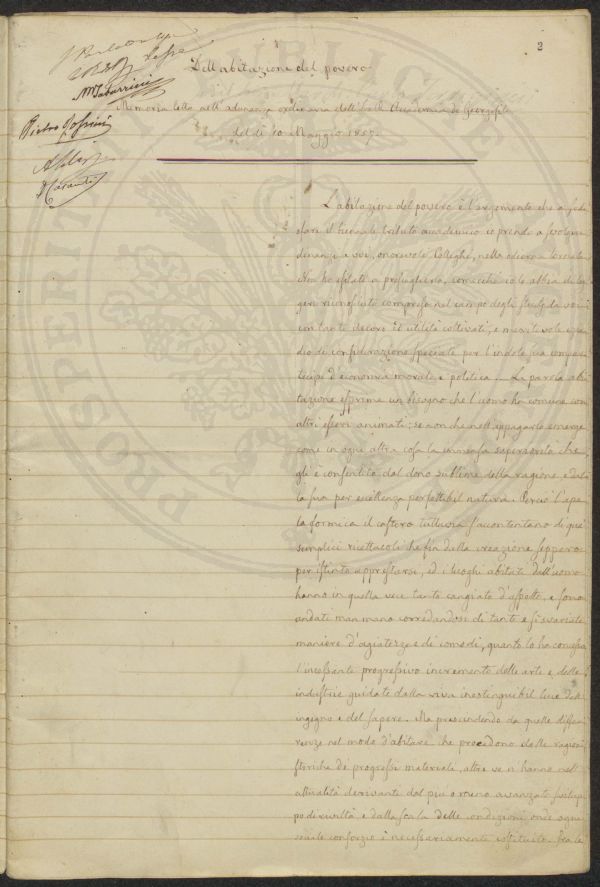 2
Dell'abitazione del povero
Memoria letta nell'adunanza ordinaria dell'I. e R. Accademia de' Georgofili
del dì 10 Maggio 1857.
Pietro
L'abitazione del povero è l'argomento che a sodi
sfare il biennale tributo accademico io prendo a svolgere
dinanzi a voi, onorevoli Colleghi, nella odierna tornata.
Non ho esitato a presceglierlo, comecchè io lo abbia di leg
geri riconosciuto compreso nel campo degli studj da voi
con tanto decoro ed utilità coltivati, e meritevole
di considerazione speciale per l'indole sua
d'economia morale e politica. La parola abi
tazione esprime un bisogno che l'uomo ha comune con
altri esseri animati; se non che nell'appagarlo emerge
come in ogni altra cosa la immensa superiorità che
gli è consentita dal dono sublime della ragione, e dal
la sua per eccellenza perfettibil natura. Perciò l'ape
la formica il castoro tuttavia s'accontentano di quei
semplici ricettacoli che fin dalla creazione seppero
per istinto apprestarsi, ed i luoghi abitati dall'uomo
hanno in quella vece tanto cangiato d'aspetto, e sono
andati man mano corredandosi di tante e sì svariate
maniere d'agiatezze e di comodi, quanto lo ha concesso
l'incessante progressivo incremento delle arti e delle
industrie guidate dalla viva inestinguibil luce dell'
ingegno e del sapere. Ma prescindendo da quelle diffe
renze nel modo d'abitare che procedono dalle ragioni
storiche de' progressi materiali, altre ve n'hanno nell'
attualità derivanti dal più o meno avanzato svilup
po di civiltà, e dalla scala delle condizioni onde ogni
consorzio è necessariamente costituito. Fra le